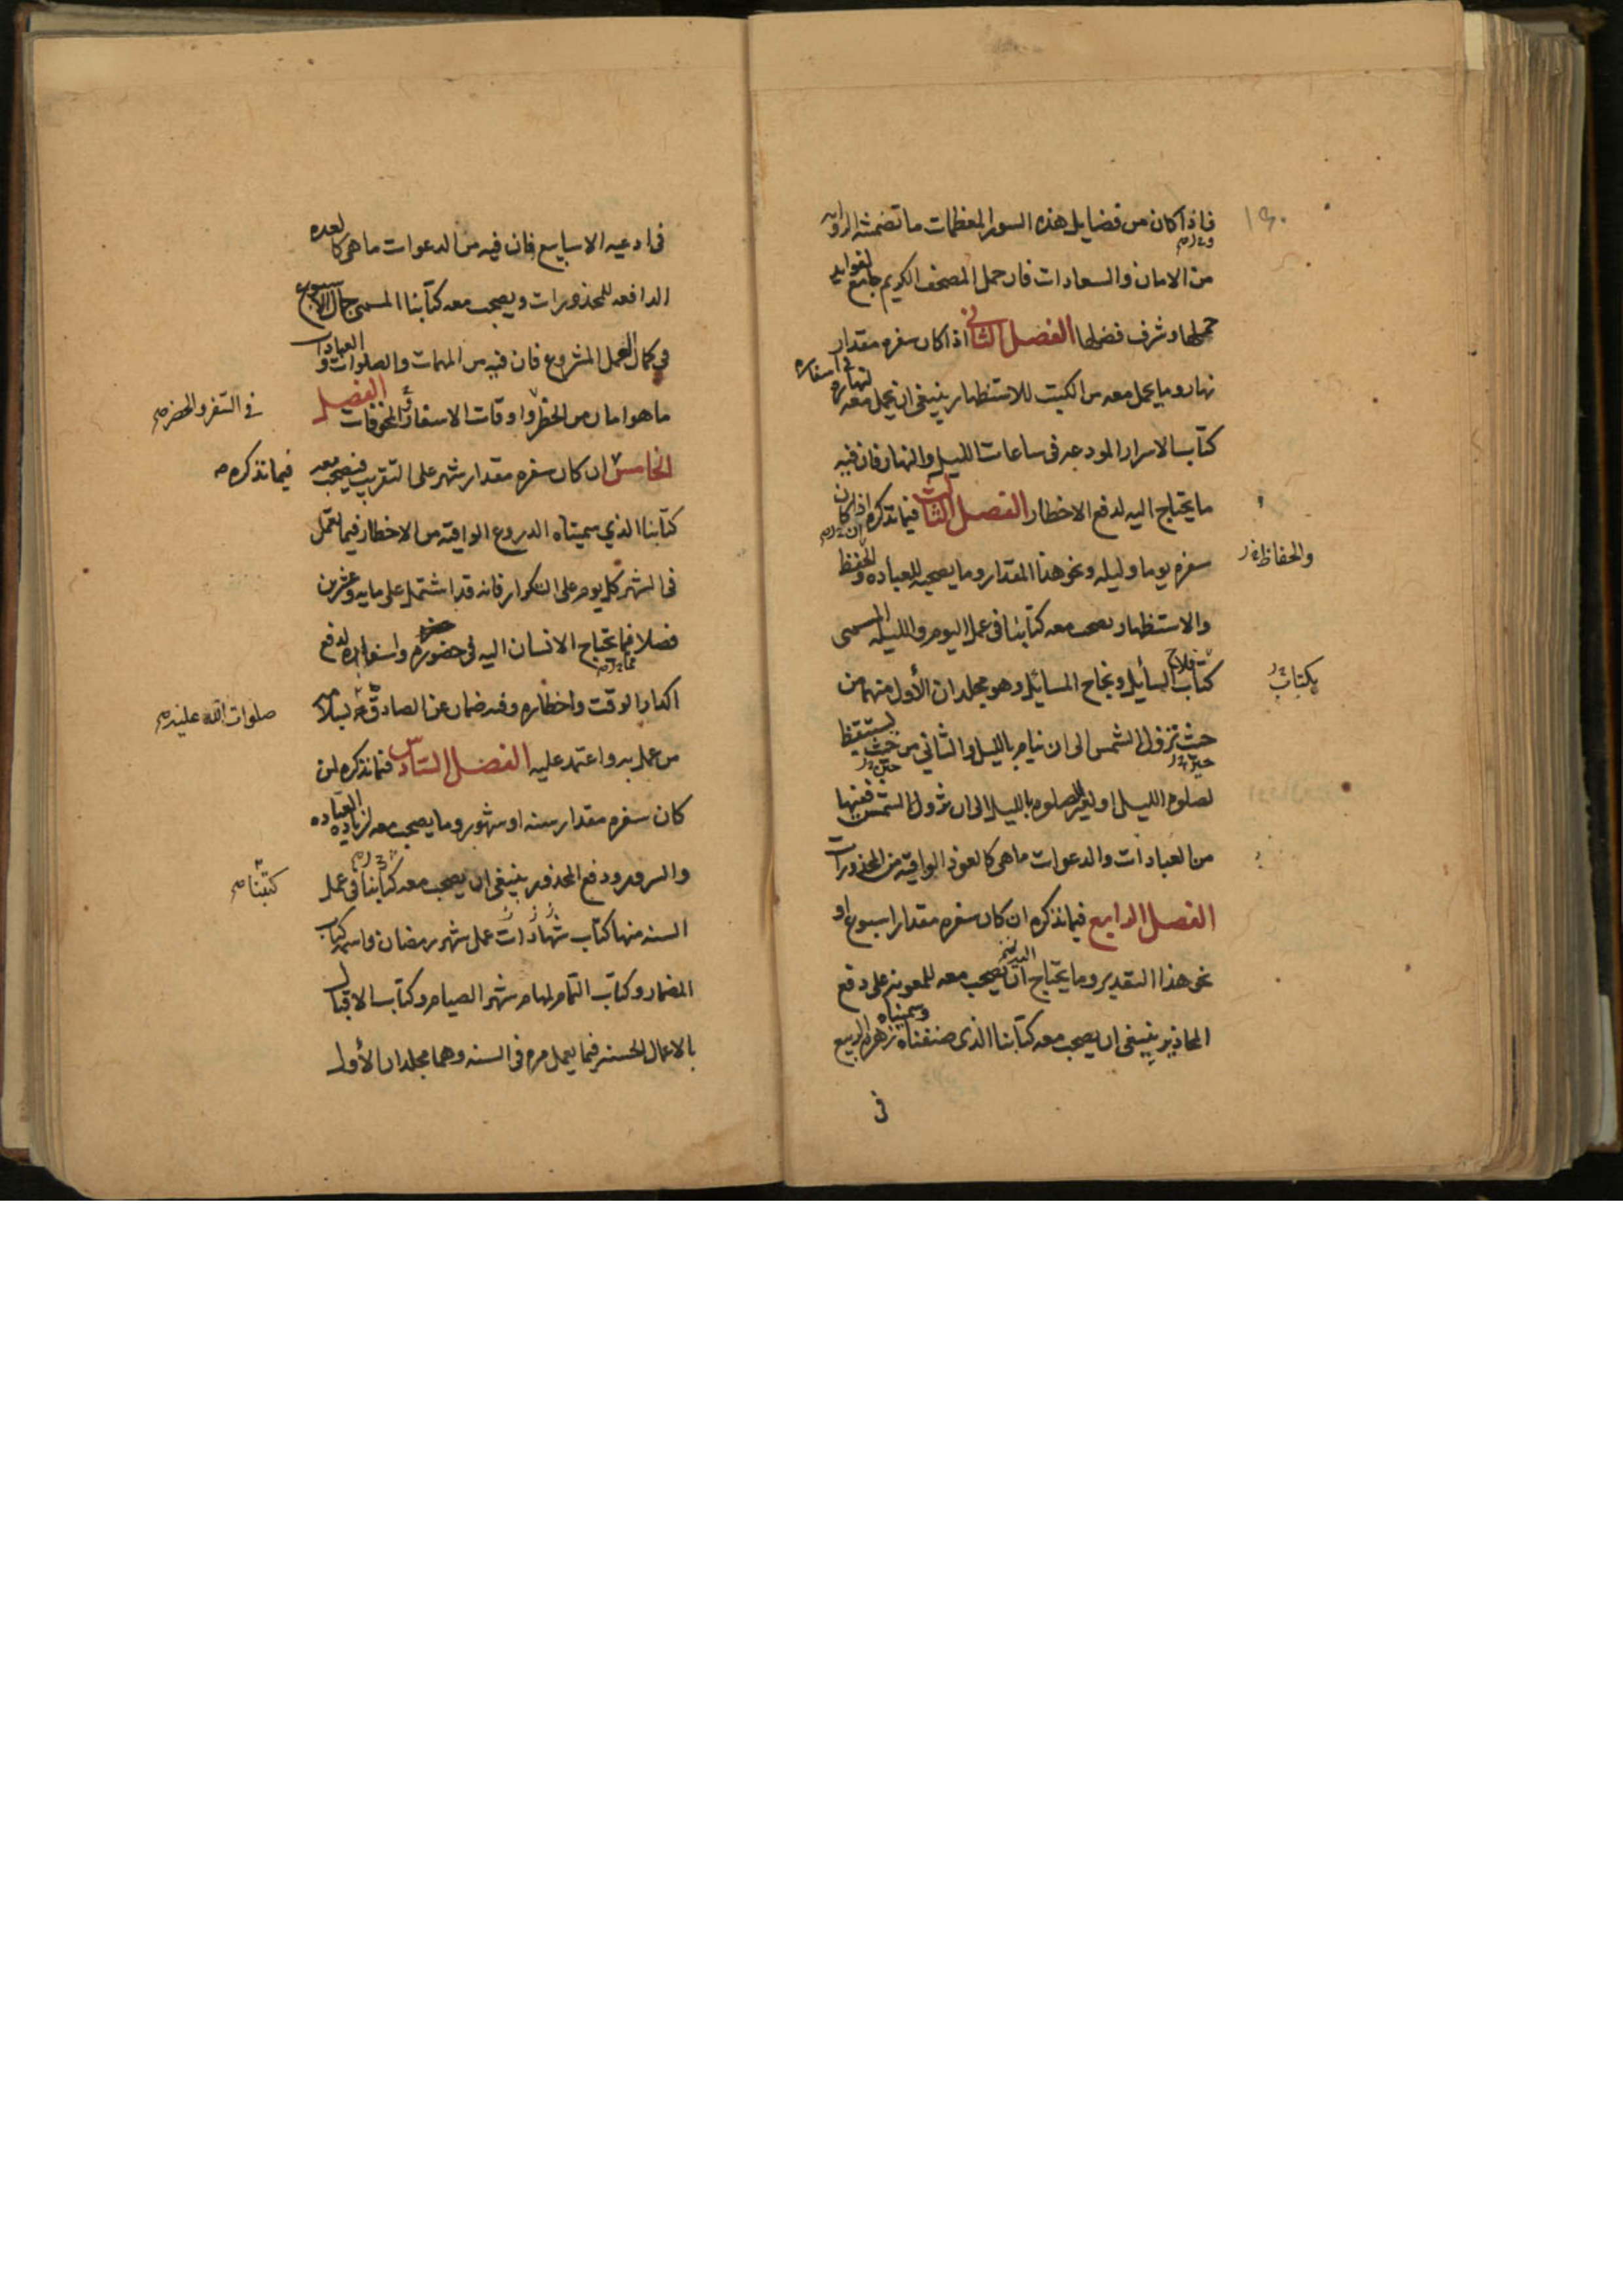 فاذا كان من فضايل هذه السور المعظمات ما تضمنته الرواية
من الامان والسعادات فان حمل المصحف الكريم جامع لفوايد
حملها وشرف فضلها الفصل الثاني اذا كان سفره مقدار
نهار وما يحمل معه من الكتب للاستظهار ينبغي ان يحمل معه في اسفاره لنهاره
كتاب الاسرار المودعه في ساعات الليل والنهار فان فيه
ما يحتاج اليه لدفع الاخطار الفصل الثالث فيما نذكره اذا كان
سفره يوما وليله ونحو هذا المقدار وما يصحبه للعباده والحفظ
والحفاظ
والاستظهار يصحب معه كتابنا في عمل اليوم والليله المسمى
كتاب فلاح السائل ونجاح المسائل وهو مجلدان الأول منهما من
بكتاب
حيث تزول الشمس الى ان ينام بالليل والثاني من حيث يستيقظ
حين
حين
لصلوه الليل او لغير الصلوه بالليل الى ان تزول الشمس ففيها
من العبادات والدعوات ما هي كالعوذ الواقيه من المحذورات
الفصل الرابع فيما نذكره ان كان سفره مقدار اسبوع او
نحو هذا التقدير وما يحتاج ان يصحب معه للمعونه على دفع
المحاذير ينبغي ان يصحب معه كتابنا الذي صنفناه وسميناه زهره الربيع
في
في ادعيه الاسابيع فان فيه من الدعوات ما هي كالعده
الدافعه للمحذورات ويصحب معه كتابنا المسمى جمال الاسبوع
في كمال العمل المشروع فان فيه من المهمات والصلوات والعبادات
ما هو امان من الخطر واوقات الاسفار والمخوفات الفصل
في السفر والحضر
الخامس ان كان سفره مقدار شهر على التقريب فيصحب معه
فيما نذكره
كتابنا الذي سميناه الدروع الواقيه من الاخطار فيما يعمل
في الشهر كل يوم على التكرار فانه قد اشتمل على مايه وعشرين
فصلا فيما يحتاج الانسان اليه في حضوره واسفاره لدفع
مما
اكدار الوقت واخطاره وفيه ضمان عن الصادق
صلوات الله عليه
من عمل به واعتمد عليه الفصل السادس فيما نذكره لمن
كان سفره مقدار سنه او شهور وما يصحب معه لزياده العباده
والسرور ودفع المحذور ينبغي ان يصحب معه كتابنا في عمل
كتبنا
السنه منها كتاب عمل شهر رمضان واسمه كتاب
المضمار وكتاب التمام لمهام شهر الصيام وكتاب الاقبال
بالاعمال الحسنه فيما يعمل مره في السنه وهما مجلدان الأول